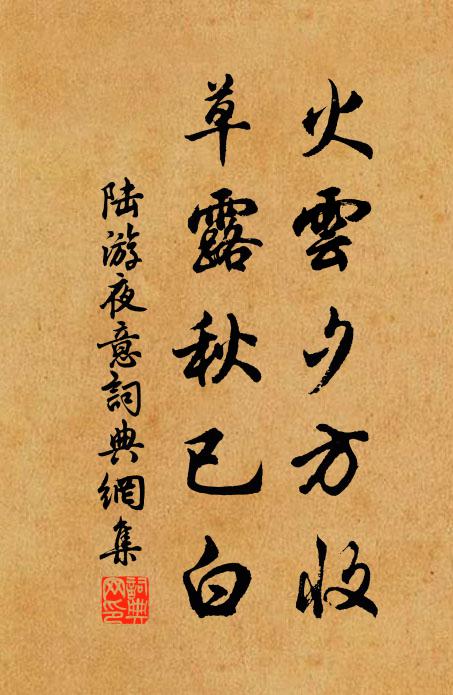 火雲夕方收
草露秋已白
陆游夜意詞典網集
詞典网印